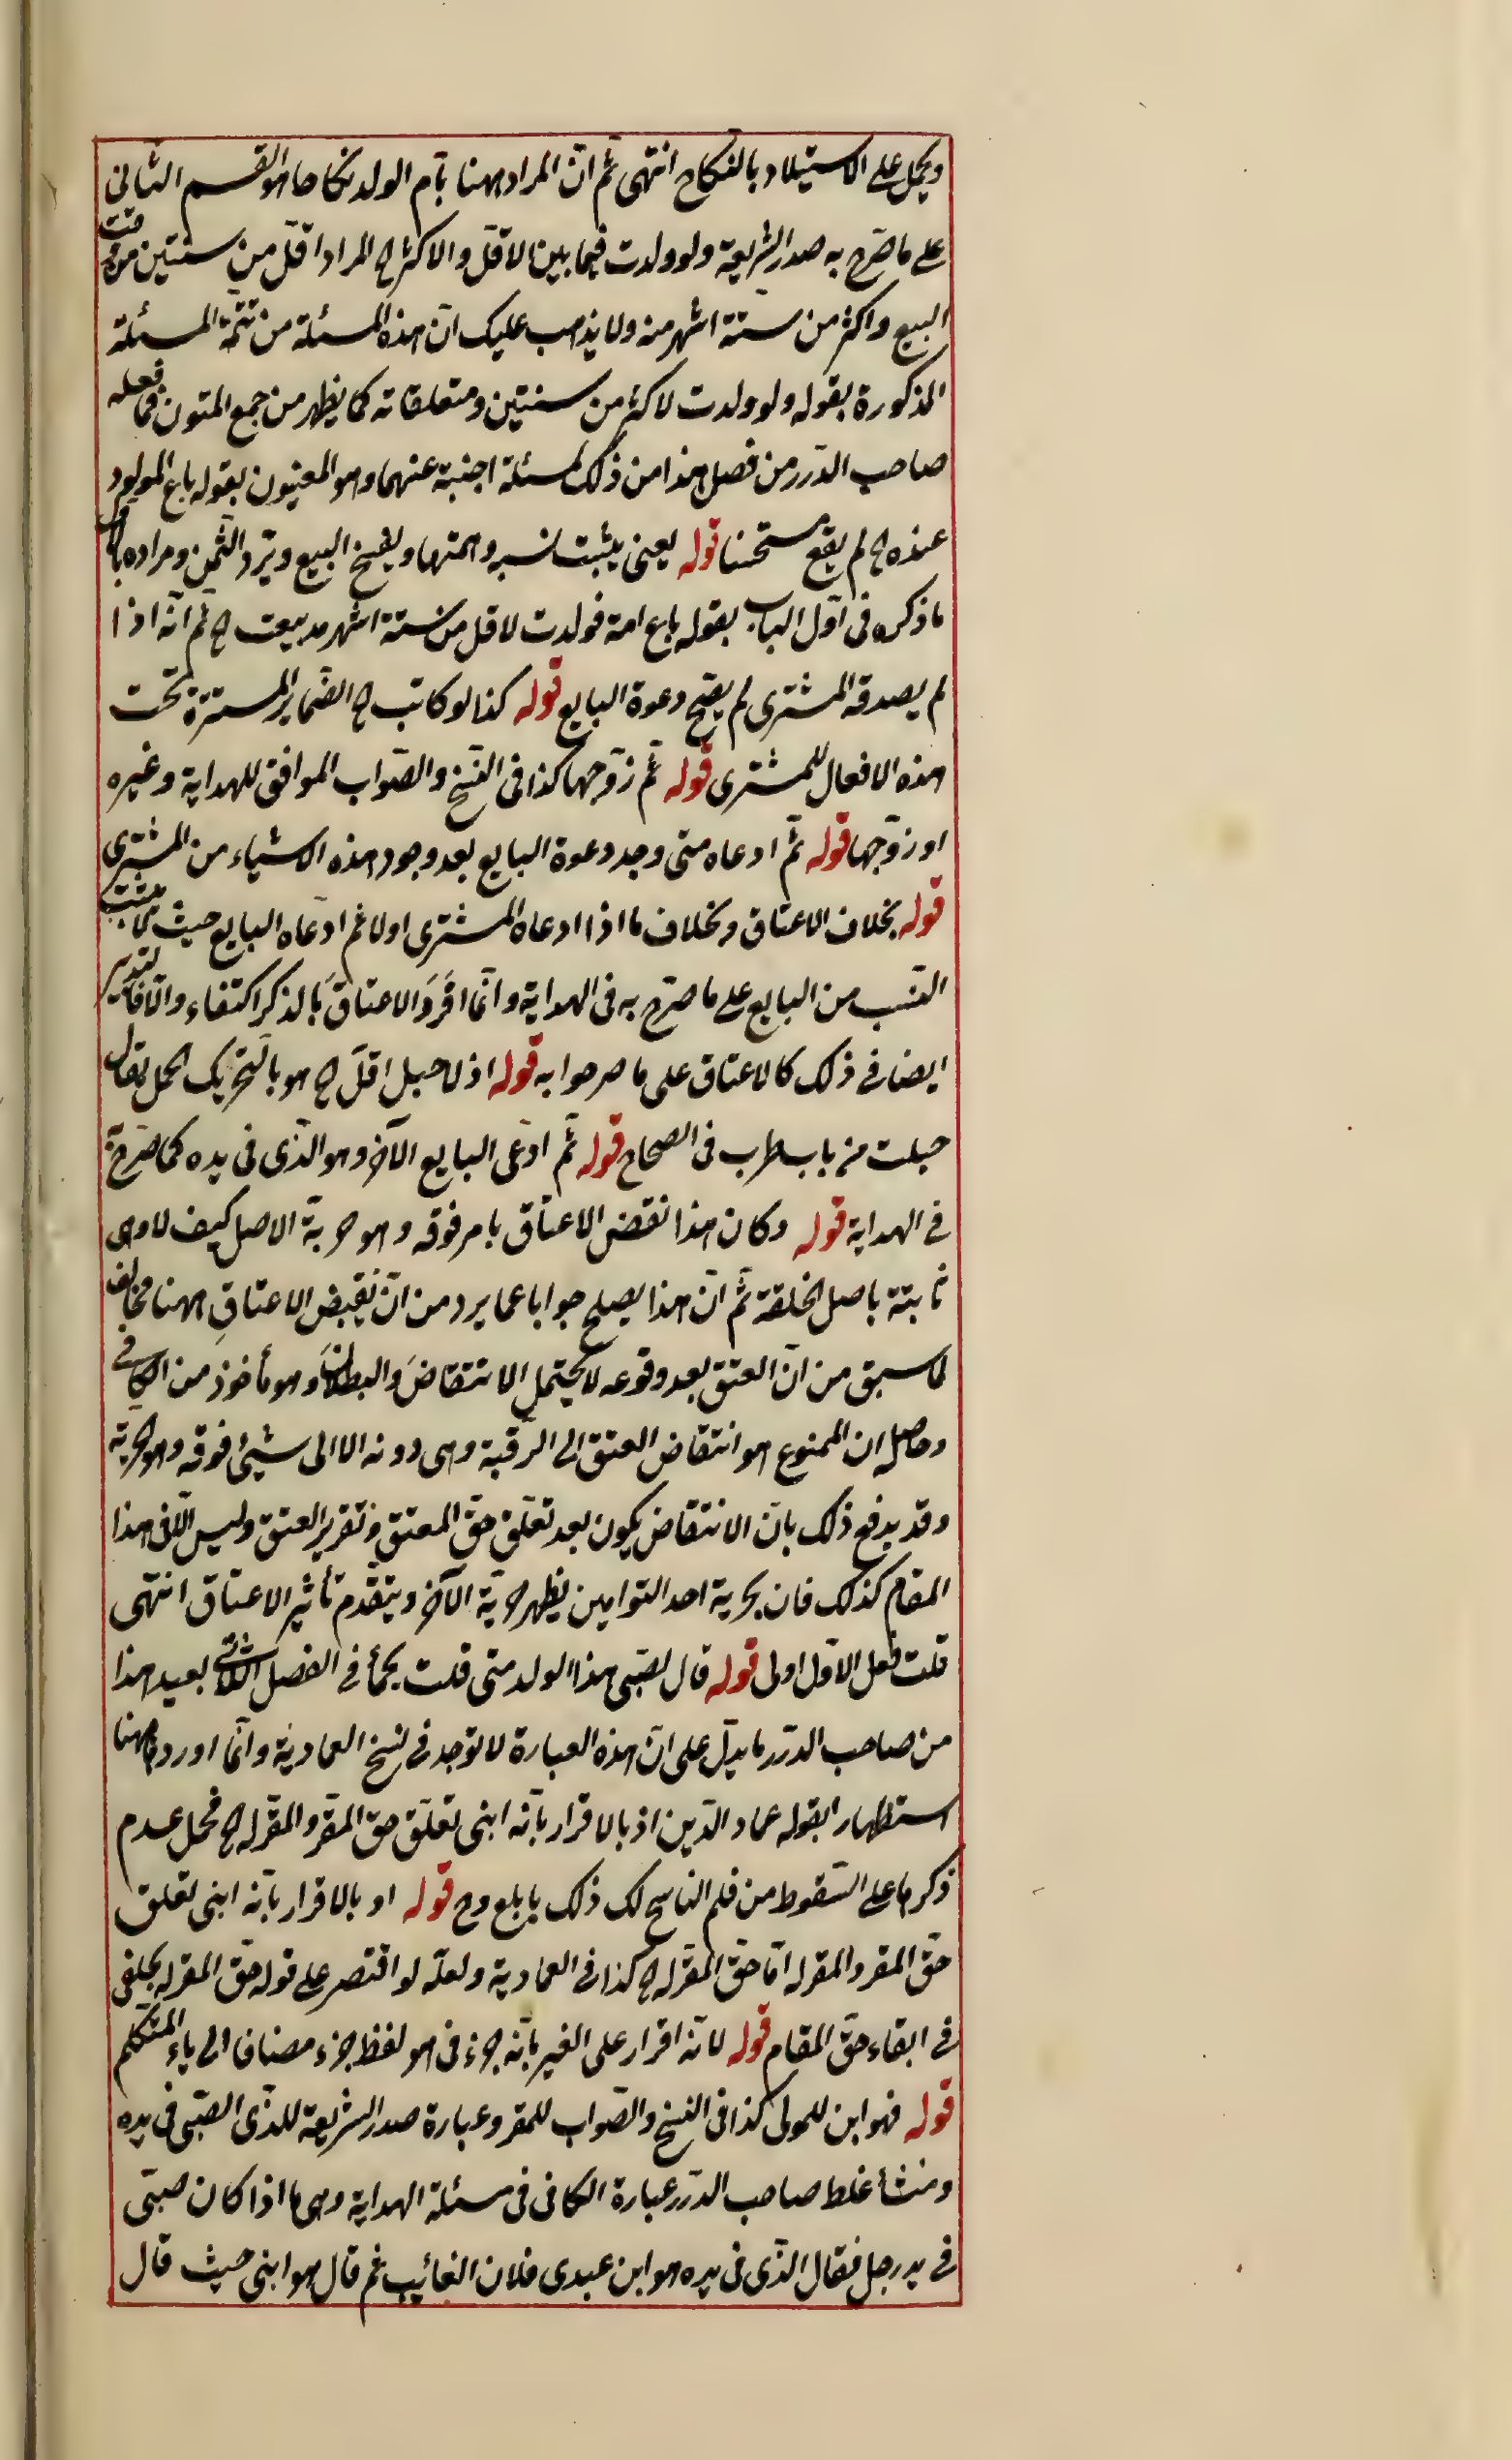 ويحمل على الاستيلاد بالنكاح انتهى ثم ان المراد ههنا بأم الولد نكاحا هو القسم الثانى
على ما صرح به صدر الشريعة ولو ولدت فيما بين الاقل والاكثر الخ المراد اقل من سنتين من وقت
البيع واكثر من ستة اشهر منه ولا يذهب عليك ان هذه المسئلة من تتمة المسئلة
المذكورة بقوله ولو ولدت لاكثر من سنتين ومتعلقاته كما يظهر من جمع المتون فما فعله
صاحب الدرر من فصل هذا من ذلك لمسئلة اجنبية عنهما وهو المعنيون بقوله باع المولود
عنده الخ لم يقع مستحسنا قوله يعنى يثبت نسبه وامتها ويفسخ البيع ويرد الثمن ومراده
ما ذكره فى اول الباب بقوله باع امة فولدت لاقل من ستة اشهر مذ بيعت الخ ثم انه اذا
لم يصدقه المشترى لم يصح دعوة البايع قوله كذا لو كاتب الخ الضماير المستترة تحت
هذه الافعال للمشترى قوله ثم زوجها كذا فى النسخ والصواب الموافق للهداية وغيره
او زوجها قوله ثم ادعاه متى وجد دعوة البايع بعد وجود هذه الاشياء من المشترى
قوله بخلاف الاعتاق وبخلاف ما اذا ادعاه المشترى اولا ثم ادعاه البايع حيث لا يثبت
النسب من البايع على ما صرح به فى الهداية وانما افرد الاعتاق بالذكر اكتفاء والا فالتدبير
ايضا فى ذلك كالاعتاق على ما صرحوا به قوله اذ لا حبل اقل الخ هو بالتحريك الحمل يقال
حبلت من باب طرب فى الصحاح قوله ثم ادعى البايع الآخر وهو الذى فى يده كما صرح به
فى الهداية قوله وكان هذا نقض الاعتاق بامر فوقه وهو حرية الاصل كيف لا وهى
ثابتة باصل الخلقة ثم ان هذا يصلح جوابا عما يرد من ان نقيض الاعتاق ههنا مخالف
لما سبق من ان العتق بعد وقوعه لا يحتمل الانتقاض والبطلان وهو مأخوذ من الكافى
وحاصله ان الممنوع هو انتقاض العتق الى الرقبة وهى دونه الا الى شيئ فوقه وهو الحرية
وقد يدفع ذلك بان الانتقاض يكون بعد تعلق حق المعتق وتقرير العتق وليس الآن هذا
المقام كذلك فان بحرية احد التوامين يظهر حرية الآخر ويتقدم تأثير الاعتاق انتهى
قلت فعل الاول اولى قوله قال لصبى هذا الولد متى قلت يجئ فى الفصل الثانى بعيد هذا
من صاحب الدرر ما يدل على ان هذه العبارة لا توجد فى نسخ العمادية وانما اوردها ههنا
استظهارا بقوله عماد الدين اذ بالاقرار بانه ابنى تعلق حق المقر والمقر له الخ فحمل عدم
ذكرها على السقوط من قلم الناسخ لك ذلك يا بلع وح قوله او بالاقرار بانه ابنى تعلق
حق المقر والمقر له اما حق المقر له الخ كذا فى العمادية ولعله لو اقتصر على قوله حق المقر له يكفى
فى ابقاء حق المقام قوله لانه اقرار على الغير بانه جزء فى هو لفظ جزء مضافا الى ياء المتكلم
قوله فهو ابن للمولى كذا فى النسخ والصواب للمقر وعبارة صدر الشريعة للذى الصبى فى يده
ومنشأ غلط صاحب الدرر عبارة الكافى فى مسئلة الهداية وهى ما اذا كان صبى
فى يد رجل فقال الذى فى يده هو ابن عبدى فلان الغائب ثم قال هو ابنى حيث قال